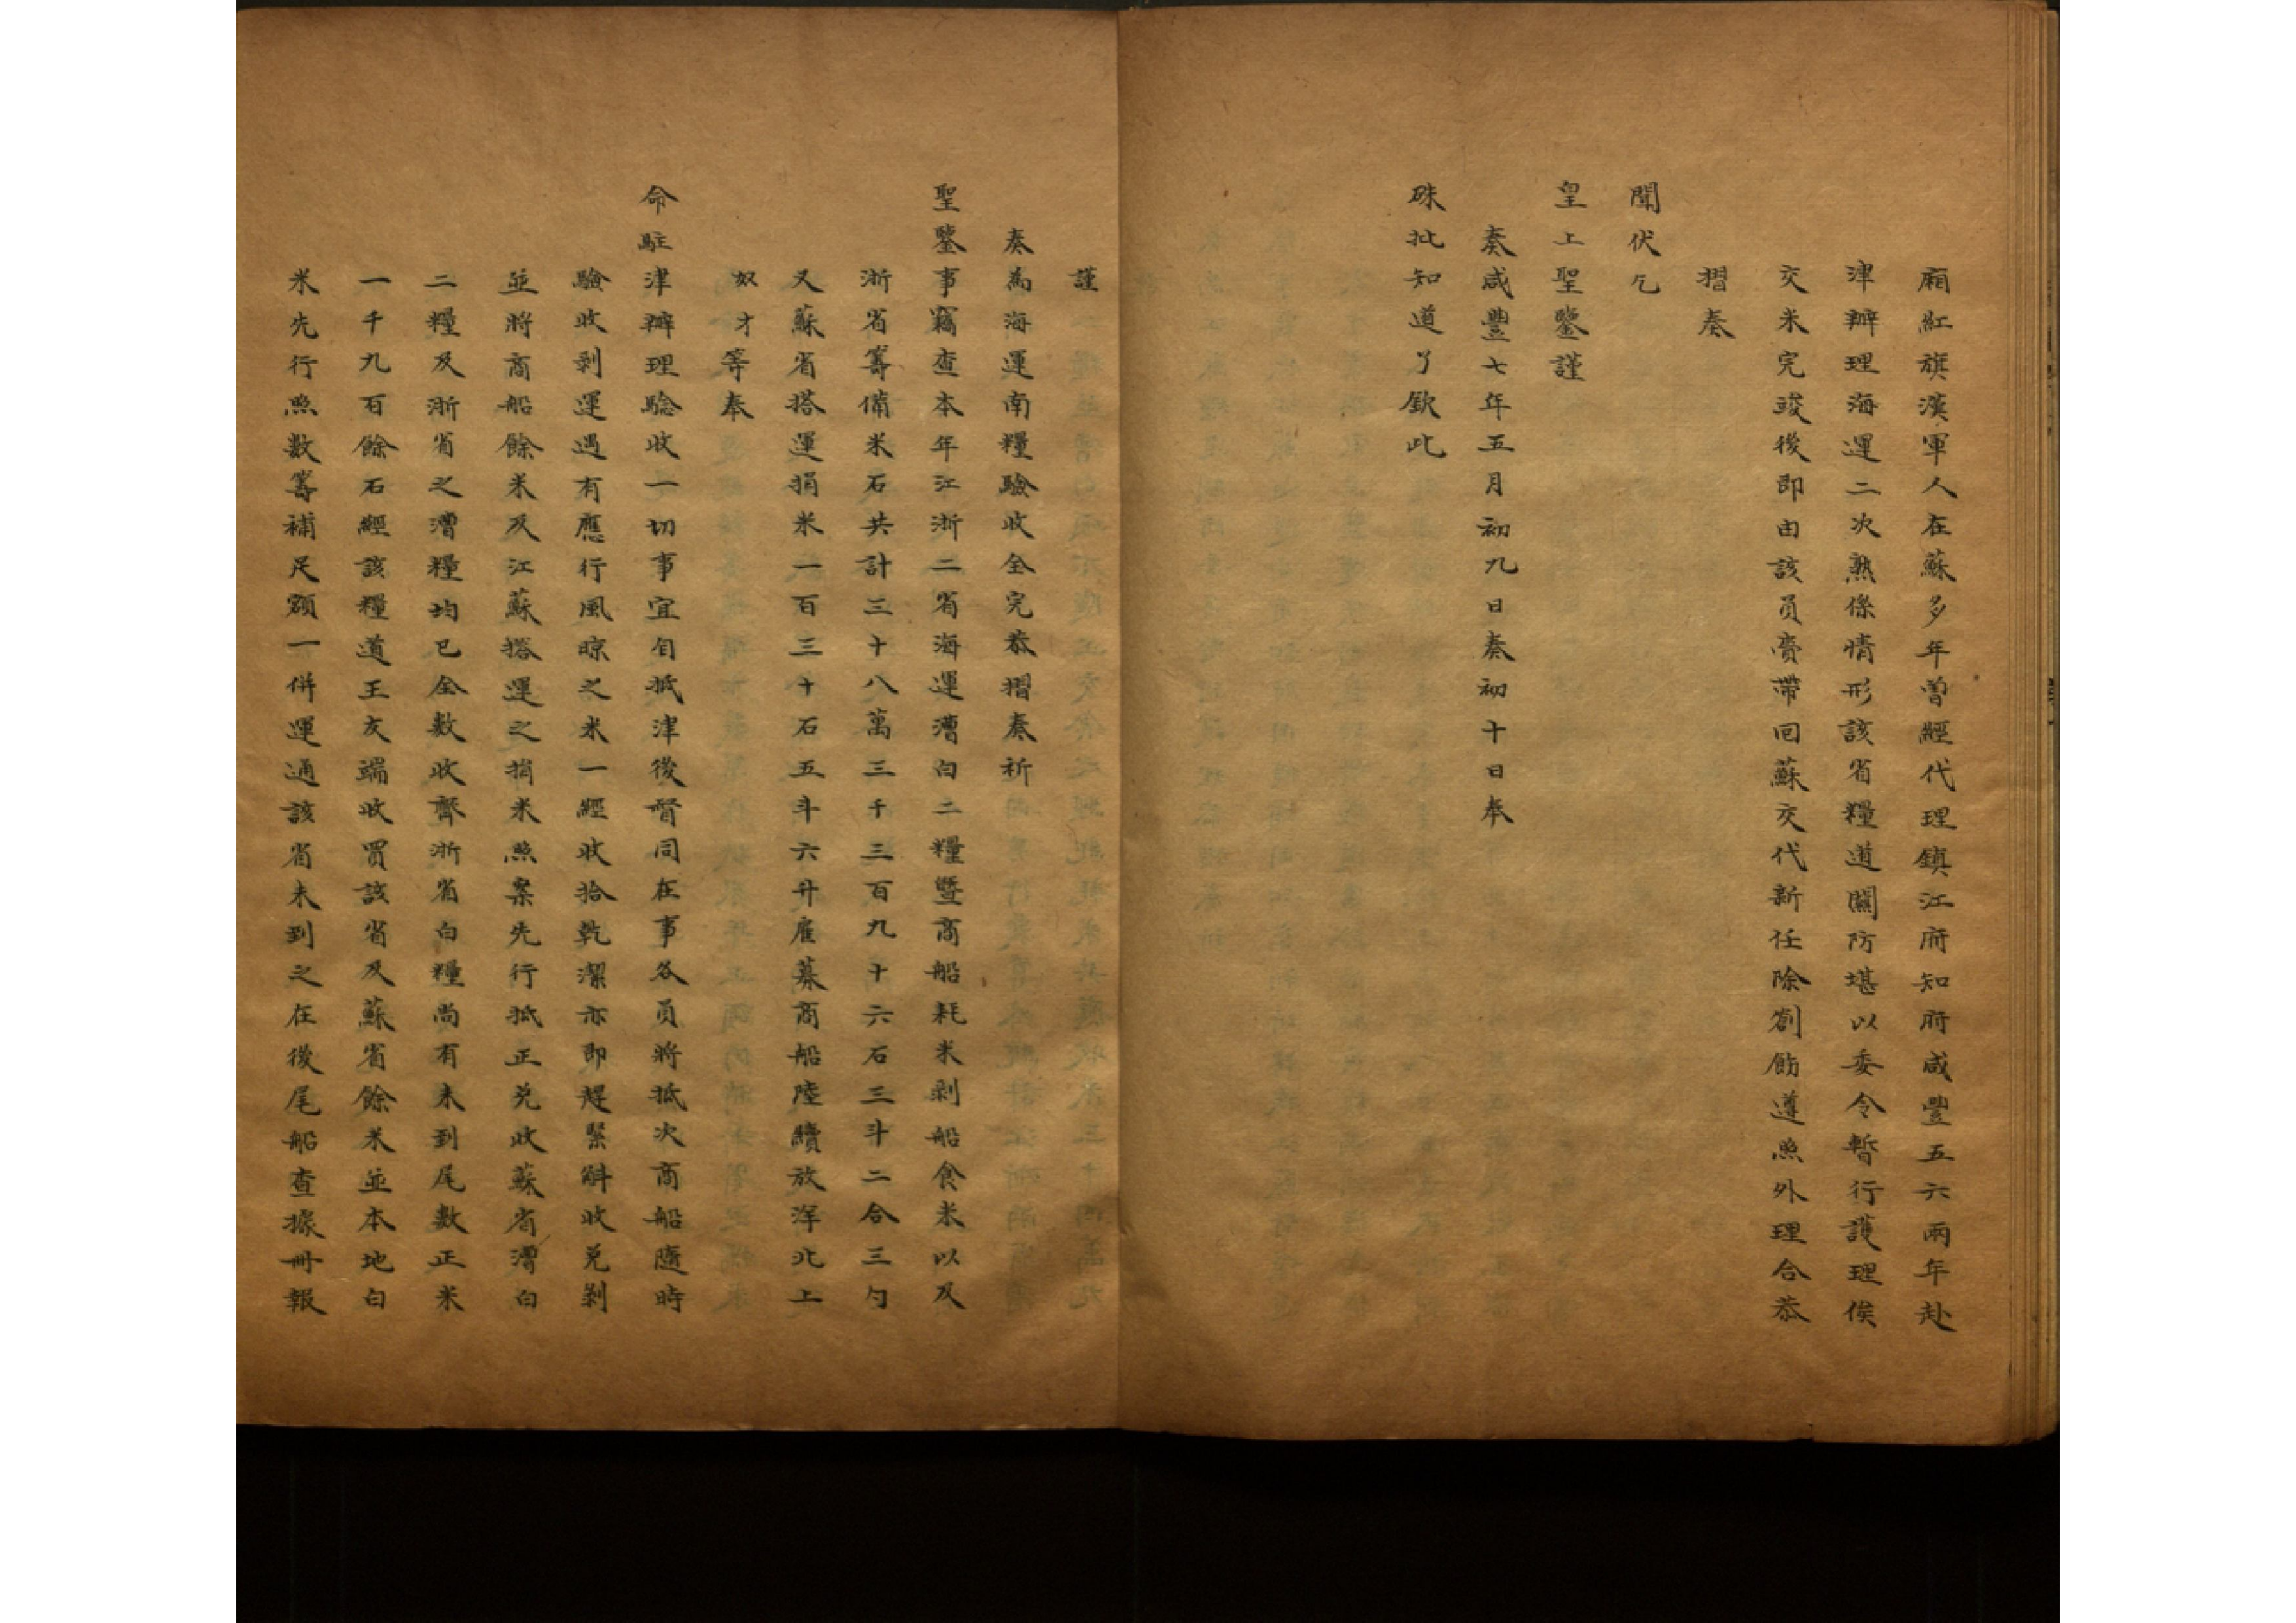 廂紅旗漢軍人在蘇多年曾經代理鎮江府知府咸豐五六兩年赴
津辦理海運二次熟係情形該省糧道關防堪以委令暫行護理俟
交米完竣後即由該員賫帶回蘇交代新任除劄飭遵照外理合恭
摺奏
聞伏乞
皇上聖鑒謹
奏咸豐七年五月初九日奏初十日奉
硃批知道了欽此
謹
奏為海運南糧驗收全完恭摺奏祈
聖鑒事竊查本年江浙二省海運漕白二糧暨商船耗米剝船食米以及
浙省籌備米石共計三十八萬三千三百九十六石三斗二合三勺
又蘇省搭運捐米一百三十石五斗六升雇募商船陸續放洋北上
奴才等奉
命駐津辦理驗收一切事宜自抵津後督同在事各員將抵次商船隨時
驗收剝運遇有應行風晾之米一經收拾乾潔亦即趕緊斛收兌剝
並將商船餘米及江蘇搭運之捐米照案先行抵正兌收蘇省漕白
二糧及浙省之漕糧均已全數收齊浙省白糧尚有未到尾數正米
一千九百餘石經該糧道王友端收買該省及蘇省餘米並本地白
米先行照數籌補足額一併運通該省未到之在後尾船查據冊報